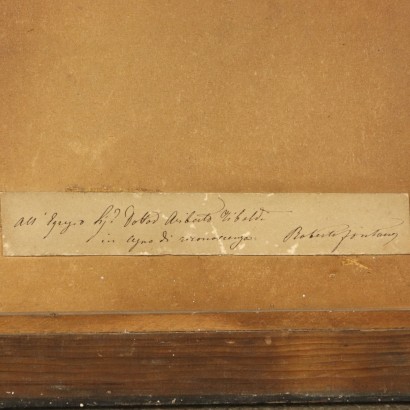 All' Egregio Sig.r Dottor Ariberto Tibaldi
in segno di riconoscenza. Roberto Fontana